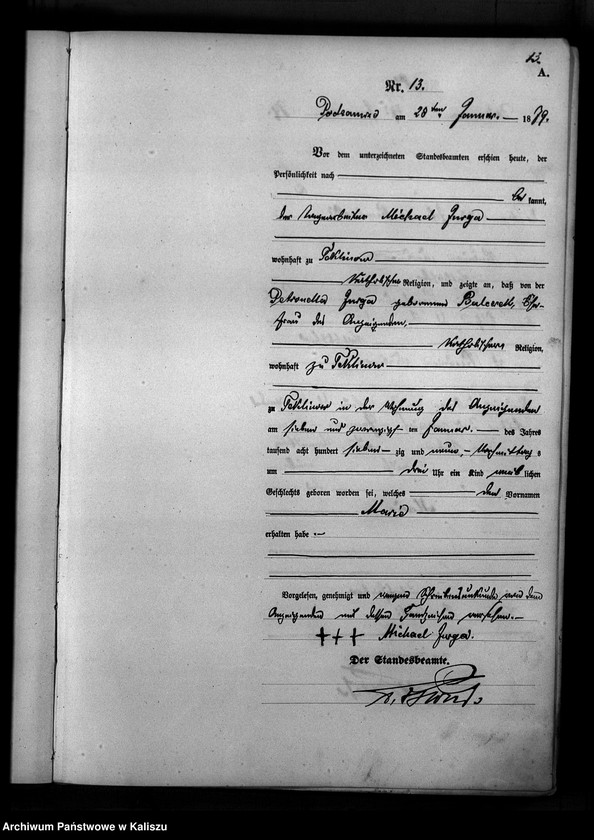 13.
A.
Nr. 13.
Podsamcze am 28 ten Januar 1879.
Vor dem unterzeichneten Standesbeamten erschien heute, der
Persönlichkeit nach
be kannt,
der Michael Jurga
wohnhaft zu Teklinow
katholischer Religion, und zeigte an, daß von der
Petronella Jurga geborenen Ehe-
frau des Anzeigenden,
katholischer Religion,
wohnhaft zu Teklinow
zu Teklinow in der Wohnung des Anzeigenden
am sieben und zwanzigs ten Januar des Jahres
tausend acht hundert sieben zig und neun, Nachmittag s
um drei Uhr ein Kind weib lichen
Geschlechts geboren worden sei, welches den Vornamen
Marie
erhalten habe
Vorgelesen, genehmigt und wegen Schreibensunkunde von dem
Anzeigenden mit dessen Handzeichen versehen.
+++ Michael Jurga.
Der Standesbeamte.
Archiwum Państwowe w Kaliszu